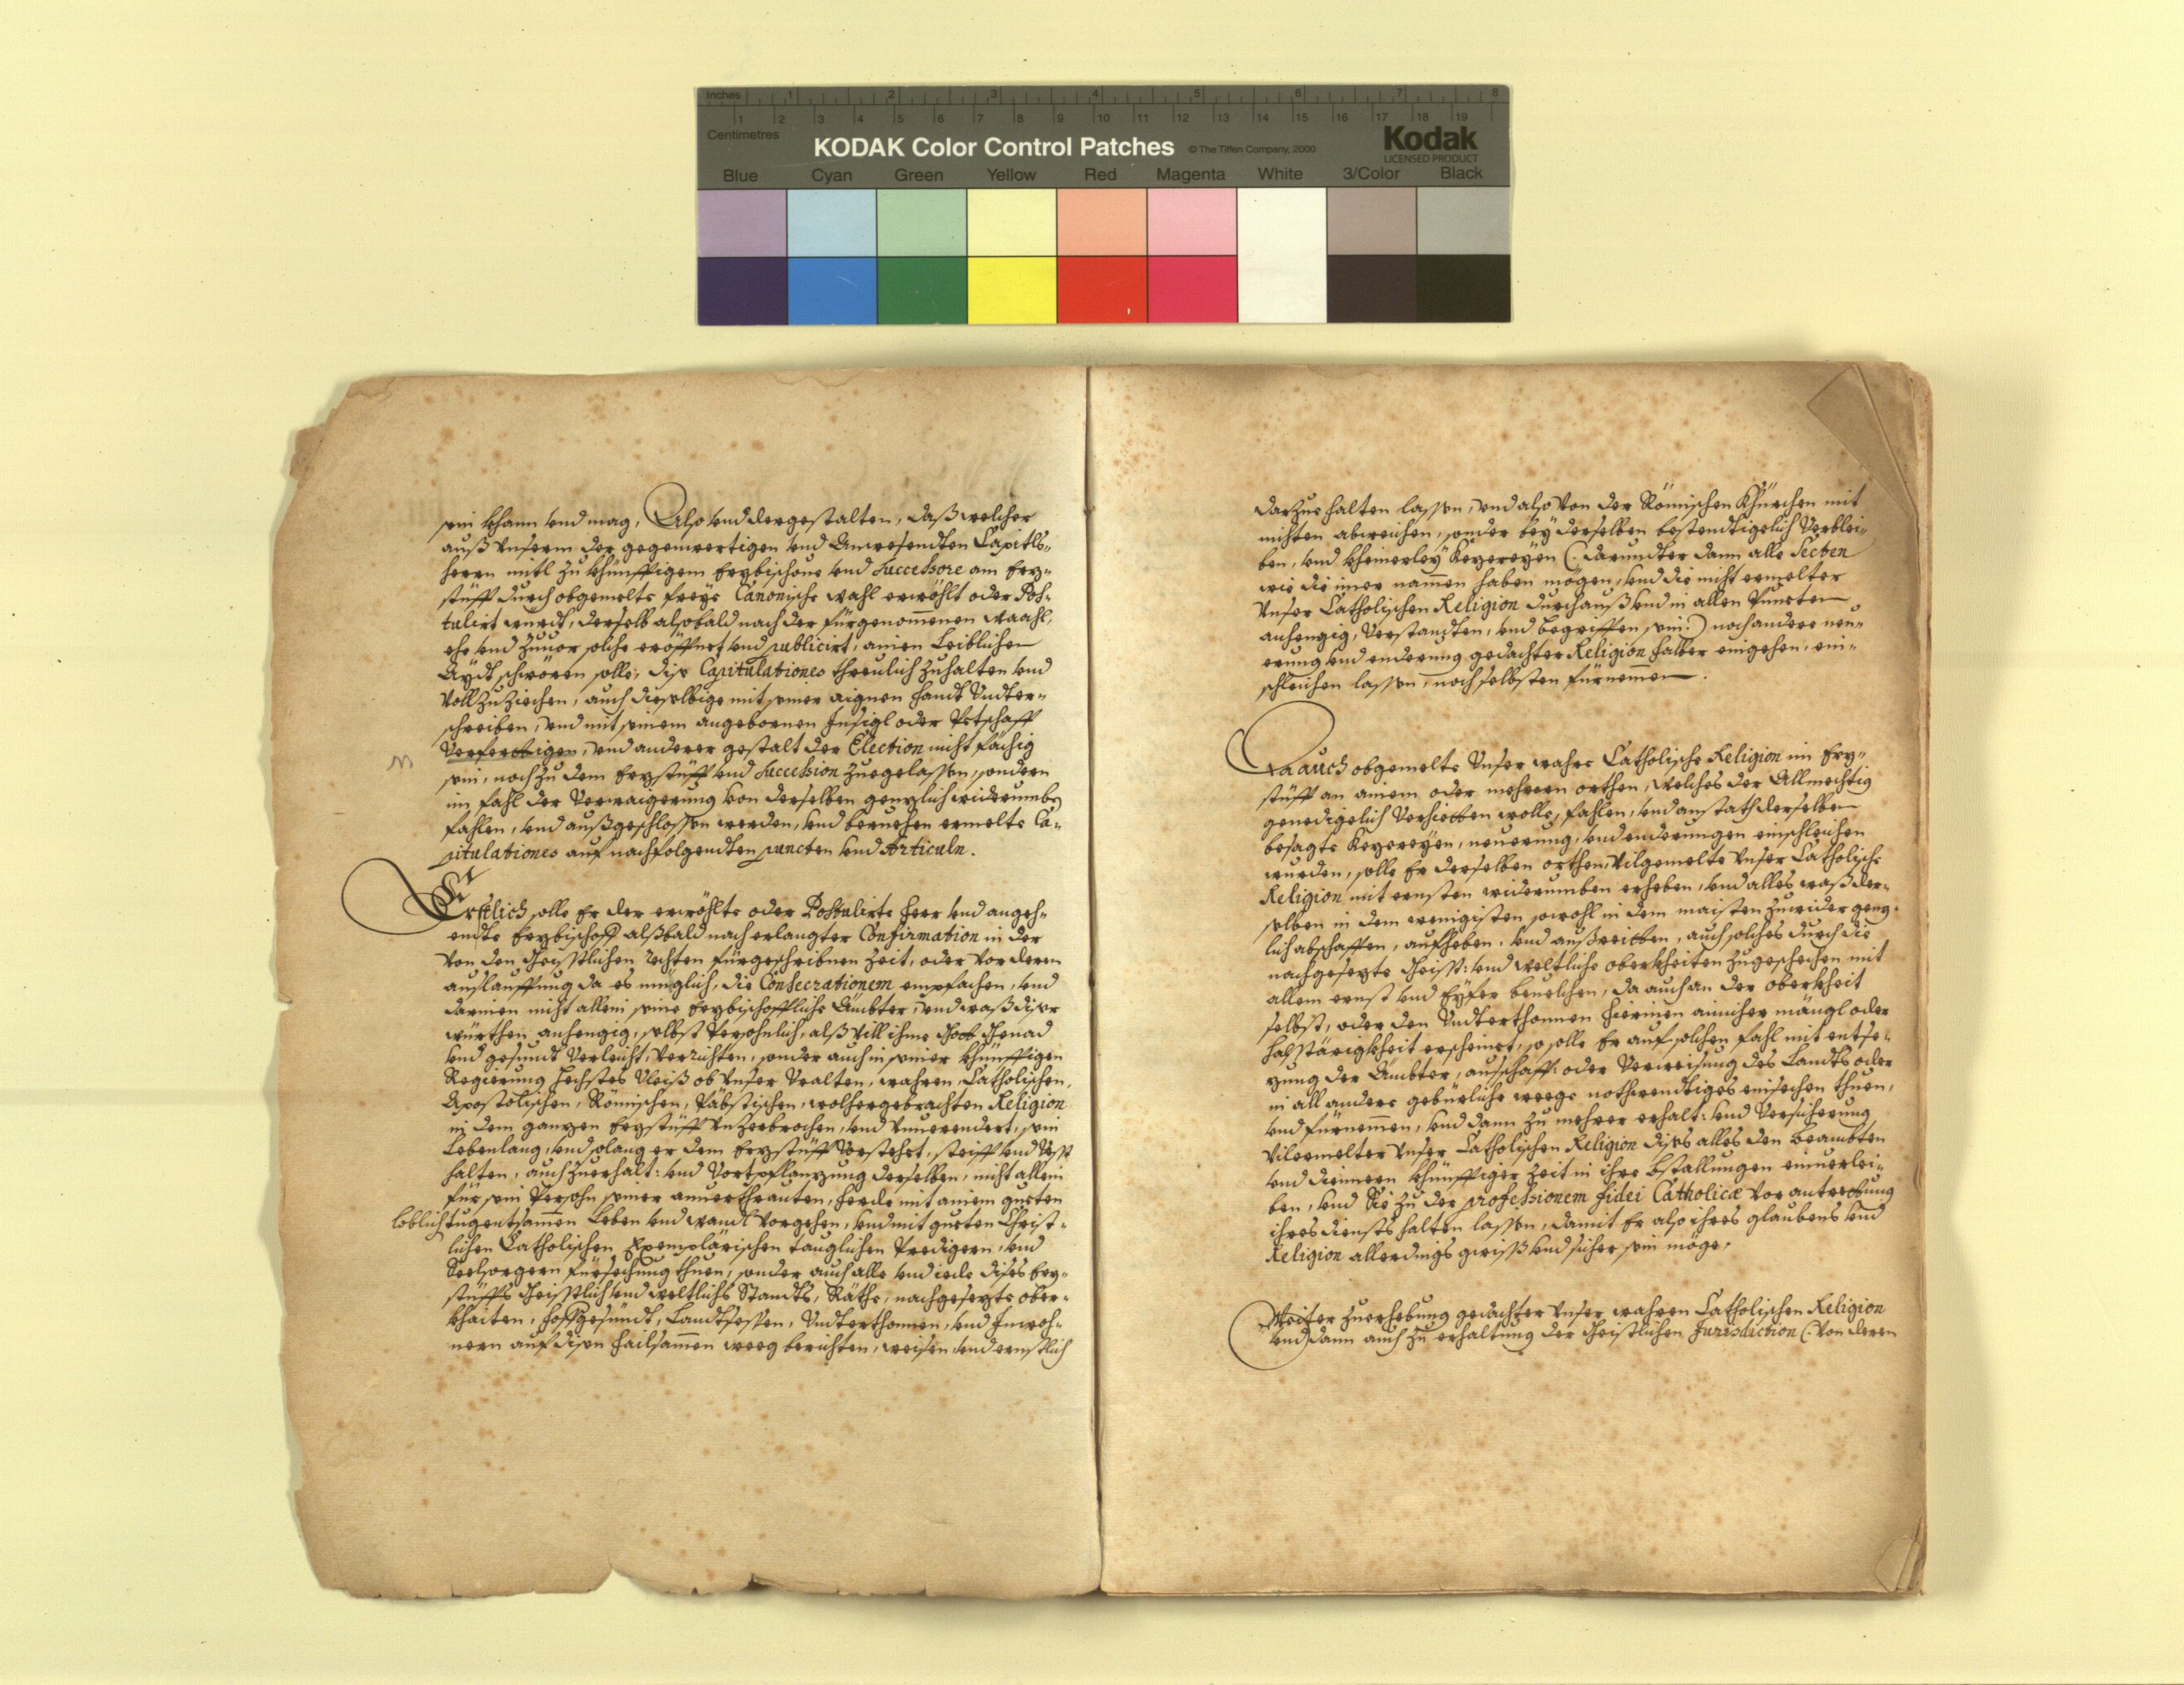 Inches 1 2 3 4 5 6 7 8
Centimetres 1 2 3 4 5 6 7 8 9 10 11 12 13 14 15 16 17 18 19
KODAK Color Control Patches © The Tiffen Company, 2000 Kodak
LICENSED PRODUCT
Blue Cyan Green Yellow Red Magenta White 3/Color Black
sein khann vnd mag, Also vnd dergestalten, daß welcher
auß Vnserm der gegenwertigen vnd Anwesendten Capitls-
herrn mitl zu khünfftigem Erzbischoue vnd Successore am Erz-
stüfft durch obgemelte freye Canonische wahl erwöhlt oder Pos-
tulirt würdt, derselb alsobald nach der fürgenommenen waahl,
ehe vnd zuuor solche eröffnet vnd publicirt, ainen Leiblichen
Aydt schwören solle, dise Capitulationes threulich zuhalten vnd
Vollzuziechen, auch dieselbige mit seiner aignen handt Vndter-
schreiben, vnd mit seinem angebornen Insigl oder Petschafft
Verferttigen, vnd anderer gestalt der Election nicht fächig
sein, noch zu dem Erzstüfft vnd Succession zuegelassen, sondern
im fahl der Verwaigerung von derselben genzlich widerumben
fahlen, vnd außgeschlossen werden, vnd beruehen ermelte Ca-
pitulationes auf nachfolgendten puncten vnd Articuln.
Erstlich solle Er der erwöhlte oder Postulirte Herr vnd angeh-
endte Erzbischoff alßbald nach erlangter Confirmation in der
Von den Geistlichen Rechten fürgeschribnen Zeit, oder vor deren
auslauffung da es müglich, die Consecrationem empfachen, vnd
darinen nicht allein seine Erzbischoffliche Ämbter, vnd waß diser
würthen anhengig, selbst Persohnlich, alß Vill ihme Gott Genad
vnd gesundt Verleicht, Verrichten, sonder auch in seiner khünfftigen
Regierung hechstes Vleiß ob Vnser Vralten, wahren, Catholischen,
Apostolischen, Römischen, Päbstischen, wolhergebrachten Religion
in dem ganzen Erzstüfft Vnzerbrochen, vnd Vnuerendert, sein
Lebenlang, vnd solang er dem Erzstüfft Vorstehet, steiff vnd Vest
halten, auch zu erhalt: vnd Vortpflanzung derselben, nicht allein
für sein Persohn seiner anuerthrauten, Herde mit ainem gueten
loblich tugentsamen Leben vnd wandl Vorgehen, vnd mit gueten Christ-
lichen Catholischen Exemplärischen tauglichen Predigern, vnd
Seelsorgern fürsechung thuen, sonder auch alle vnd iede dises Erz-
stüffts Geistlich vnd weltlichs Standts, Räthe, nachgesezte ober-
kheiten, Hoffgesündt, Landtsessen, Vndterthonnen, vnd Inwoh-
nern auf disen hailsamen weeg berichten, weisen vnd ernstlich
darzue halten lassen, vnd also von der Römischen Khürchen mit
nichten abweichen, sonder bey derselben bestendtigelich Verblei-
ben, vnd kheinerley Kezereyen (: darundter dann alle Secten
wie die imer nammen haben mögen, vnd die nicht ermelter
Vnser Catholischen Religion durchauß vnd in allen Puncten
anhengig, Verstandten, vnd begriffen sein:) noch andere neu-
erung vnd enderung gedachter Religion halber eingehen, ein-
schleichen lassen, noch selbsten fürnemmen.
Da auch obgemelte Vnser wahre Catholische Religion im Erz-
stüfft an ainem oder mehrern orthen, welches der Allmechtig
genedigelich Verhietten wolle, fahlen, vnd anstath derselben
besagte Kezereyen, neuerung, vnd enderungen einschleichen
wurden, solle Er derselben orthen, vilgemelte Vnser Catholische
Religion mit ernsten widerumben erheben, vnd alles waß der-
selben in dem wenigisten sowohl in dem maisten zuwider genz-
lich abschaffen, aufheben, vnd außreitten, auch solches durch die
nachgesezte Geist: vnd weltliche oberkheiten zugeschechen mit
allem ernst vnd Eyfer beuelchen, da auch an der oberkheit
selbst, oder den Vndterthonnen hierinen ainicher mängl oder
halsstärigkheit erscheinet, so solle Er auf solchen fahl mit entse-
zung der Ämbter, ausschaff: oder Verweisung des Landts oder
in all andere gebürliche weege nothwendtiges einsechen thuen,
vnd fürnemmen, vnd dann zu mehrer erhalt: vnd Versicherung
Vilermelter Vnser Catholischen Religion dises alles den beambten
vnd dienern khünfftiger Zeit in ihre bstallungen einuerlei-
ben, vnd Sie zu der professionem fidei Catholicæ Vor antrettung
ihres diensts halten lassen, damit Er also ihres glaubens vnd
Religion allerdings gwiß vnd sicher sein möge,
Weiter zuerhebung gedachter Vnser wahren Catholischen Religion
vnd dann auch zu erhaltung der Geistlichen Jurisdiction (: Von deren